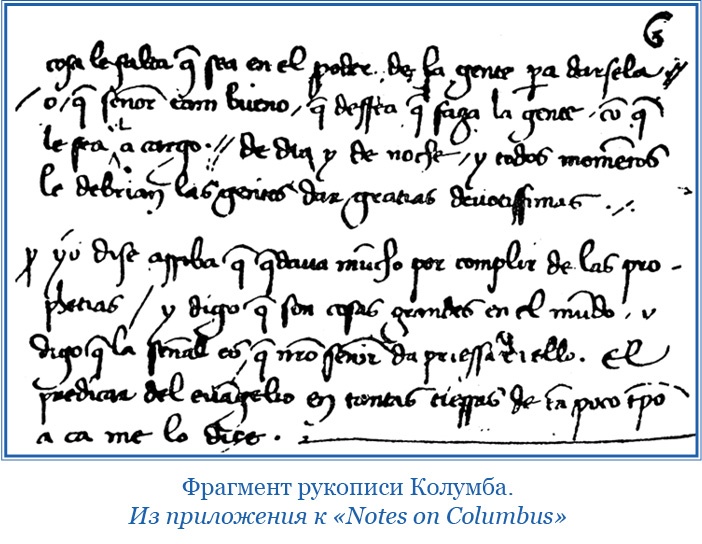 6
cosa le falta q̃ sea en el poder de la gente p̱a darsela //
/ o / q̃ señor tam bueno / q̃ dessea q̃ faga la gente / cõ q̃
le sea L a cargo . // de dia y de noche / y todos momẽtos
le debrian las gentes dar gratias devotissimas . //
y yo dise arriba q̃ q̃dava mũcho por complir de las pro -
phetias / y digo q̃ son cosas grandes en el mũdo / y
digo q̃ la señal es q̃ nrõ señor da priessa a ello . El
predicar del evãgelio en tantas tierras de tã poco tp̃o
a ca me lo dice .
Фрагмент рукописи Колумба.
Из приложения к «Notes on Columbus»